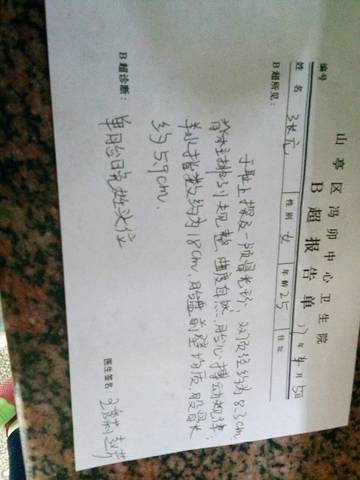 山亭区冯卯中心卫生院
B超报告单
编号
17年4月5日
姓名 张亮 性别 女 年龄 25 住址
B超所见:
于耻上探及一颅骨光环,双顶径约为8.3cm
脊柱排列规整,曲度自然,胎心搏动规律;
羊水指数约为18cm,胎盘前壁均质,股骨长
约5.9cm.
B超诊断:
单胎晚妊头位
医生签名